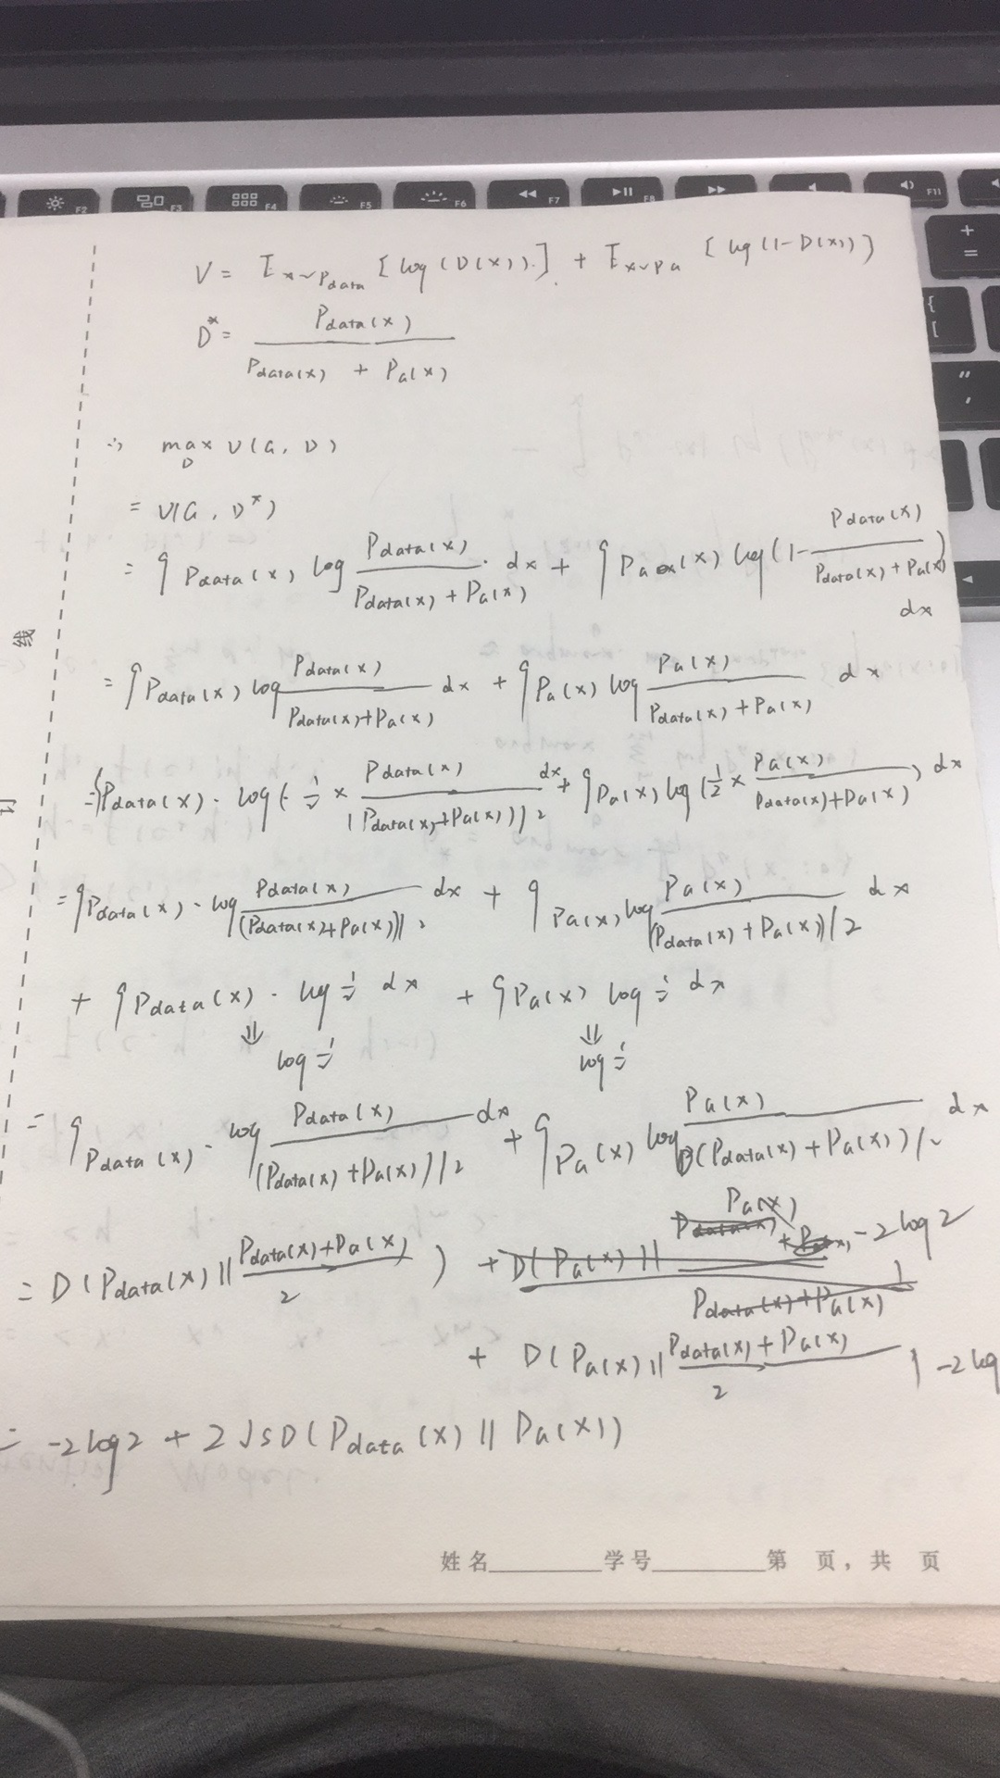 F2 F3 F4 F5 F6 F7 F8 F11
V = E_{x~Pdata} [log(D(x))] + E_{x~PG} [log(1-D(x))]
D* = Pdata(x) / (Pdata(x) + PG(x))
∴ max_D V(G, D)
= V(G, D*)
= ∫ Pdata(x) log Pdata(x) / (Pdata(x) + PG(x)) · dx + ∫ PG(x) log(1 - Pdata(x) / (Pdata(x) + PG(x))) dx
= ∫ Pdata(x) log Pdata(x) / (Pdata(x) + PG(x)) dx + ∫ PG(x) log PG(x) / (Pdata(x) + PG(x)) dx
= ∫ Pdata(x) · log( 1/2 × Pdata(x) / (Pdata(x) + PG(x))/2 dx + ∫ PG(x) log( 1/2 × PG(x) / (Pdata(x) + PG(x)) ) dx
= ∫ Pdata(x) · log Pdata(x) / (Pdata(x) + PG(x))/2 dx + ∫ PG(x) log PG(x) / (Pdata(x) + PG(x))/2 dx
+ ∫ Pdata(x) · log 1/2 dx + ∫ PG(x) log 1/2 dx
⇓ ⇓
log 1/2 log 1/2
= ∫ Pdata(x) · log Pdata(x) / (Pdata(x) + PG(x))/2 dx + ∫ PG(x) log PG(x) / (Pdata(x) + PG(x))/2 dx
-2log2
= D(Pdata(x) || (Pdata(x) + PG(x)) / 2 )
+ D(PG(x) || (Pdata(x) + PG(x)) / 2 ) -2log
= -2log2 + 2JSD(Pdata(x) || PG(x))
线
姓名 学号 第 页，共 页